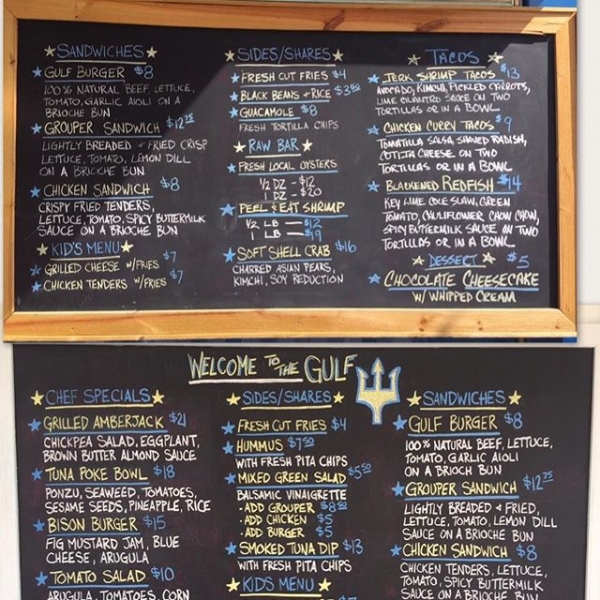 SANDWICHES
GULF BURGER $8
100% NATURAL BEEF, LETTUCE,
TOMATO, GARLIC AIOLI ON A
BRIOCHE BUN
GROUPER SANDWICH $12.75
LIGHTLY BREADED + FRIED CRISP
LETTUCE, TOMATO, LEMON DILL
ON A BRIOCHE BUN
CHICKEN SANDWICH $8
CRISPY FRIED TENDERS,
LETTUCE, TOMATO, SPICY BUTTERMILK
SAUCE ON A BRIOCHE BUN
KID'S MENU
GRILLED CHEESE W/FRIES $7
CHICKEN TENDERS W/FRIES $7
SIDES/SHARES
FRESH CUT FRIES $4
BLACK BEANS + RICE $3.50
GUACAMOLE $8
FRESH TORTILLA CHIPS
RAW BAR
FRESH LOCAL OYSTERS
1/2 DZ - $12
1 DZ - $20
PEEL & EAT SHRIMP
1/2 LB $12
1 LB $19
SOFT SHELL CRAB $16
CHARRED ASIAN PEARS,
KIMCHI, SOY REDUCTION
TACOS
JERK SHRIMP TACOS $13
AVOCADO, KIMCHI, PICKLED CARROTS,
LIME CILANTRO SAUCE ON TWO
TORTILLAS OR IN A BOWL
CHICKEN CURRY TACOS $9
TOMATILLA SALSA, SHAVED RADISH,
COTIJA CHEESE ON TWO
TORTILLAS OR IN A BOWL
BLACKENED REDFISH $14
KEY LIME COLE SLAW, GREEN
TOMATO, CAULIFLOWER CHOW CHOW,
SPICY BUTTERMILK SAUCE ON TWO
TORTILLAS OR IN A BOWL
DESSERT $5
CHOCOLATE CHEESECAKE
W/ WHIPPED CREAM
WELCOME TO THE GULF
CHEF SPECIALS
GRILLED AMBERJACK $21
CHICKPEA SALAD, EGGPLANT,
BROWN BUTTER ALMOND SAUCE
TUNA POKE BOWL $18
PONZU, SEAWEED, TOMATOES,
SESAME SEEDS, PINEAPPLE, RICE
BISON BURGER $15
FIG MUSTARD JAM, BLUE
CHEESE, ARUGULA
TOMATO SALAD $10
ARUGULA, TOMATOES, CORN
SIDES/SHARES
FRESH CUT FRIES $4
HUMMUS $7.50
WITH FRESH PITA CHIPS
MIXED GREEN SALAD $5.50
BALSAMIC VINAIGRETTE
- ADD GROUPER $8.50
- ADD CHICKEN $5
- ADD BURGER $5
SMOKED TUNA DIP $13
WITH FRESH PITA CHIPS
KIDS MENU
SANDWICHES
GULF BURGER $8
100% NATURAL BEEF, LETTUCE,
TOMATO, GARLIC AIOLI
ON A BRIOCH BUN
GROUPER SANDWICH $12.75
LIGHTLY BREADED + FRIED,
LETTUCE, TOMATO, LEMON DILL
SAUCE ON A BRIOCHE BUN
CHICKEN SANDWICH $8
CHICKEN TENDERS, LETTUCE,
TOMATO, SPICY BUTTERMILK
SAUCE ON A BRIOCHE BUN